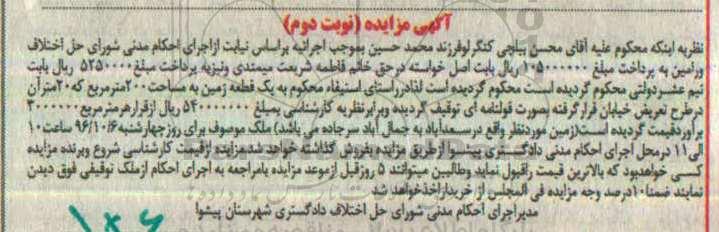 آگهی مزایده (نوبت دوم)
نظربه اینکه محکوم علیه آقای محسن پیاچی کنگرلوفرزند محمد حسین بموجب اجرائیه براساس نیابت ازاجرای احکام مدنی شورای حل اختلاف
ورامین به پرداخت مبلغ ۱۰۵۰۰۰۰۰۰ ریال بابت اصل خواسته درحق خانم فاطمه شریعت میمندی ونیزبه پرداخت مبلغ ۵۲۵۰۰۰۰ ریال بابت
نیم عشردولتی محکوم گردیده است محکوم گردیده است لذادرراستای استیفاء محکوم به یک قطعه زمین به مساحت ۲۰۰مترمربع که ۲۰مترآن
درطرح تعریض خیابان قرارگرفته بصورت قولنامه ای توقیف گردیده وبرابرنظریه کارشناسی بمبلغ ۵۴۰۰۰۰۰۰۰ ریال ازقرارهرمترمربع ۳۰۰۰۰۰۰
برآوردقیمت گردیده است(زمین موردنظر واقع درسعدآباد به جمال آباد سرجاده می باشد) ملک موصوف برای روزچهارشنبه ۹۶/۱۰/۶ ساعت ۱۰
الی ۱۱ درمحل اجرای احکام مدنی دادگستری پیشوا ازطریق مزایده بفروش گذاشته خواهد شدمزایده ازقیمت کارشناسی شروع وبرنده مزایده
کسی خواهدبود که بالاترین قیمت راقبول نماید وطالبین میتوانند ۵ روزقبل ازموعد مزایده بامراجعه به اجرای احکام ازملک توقیفی فوق دیدن
نمایند ضمنا ۱۰درصد وجه مزایده فی المجلس از خریدارأخذخواهد شد
مدیراجرای احکام مدنی شورای حل اختلاف دادگستری شهرستان پیشوا